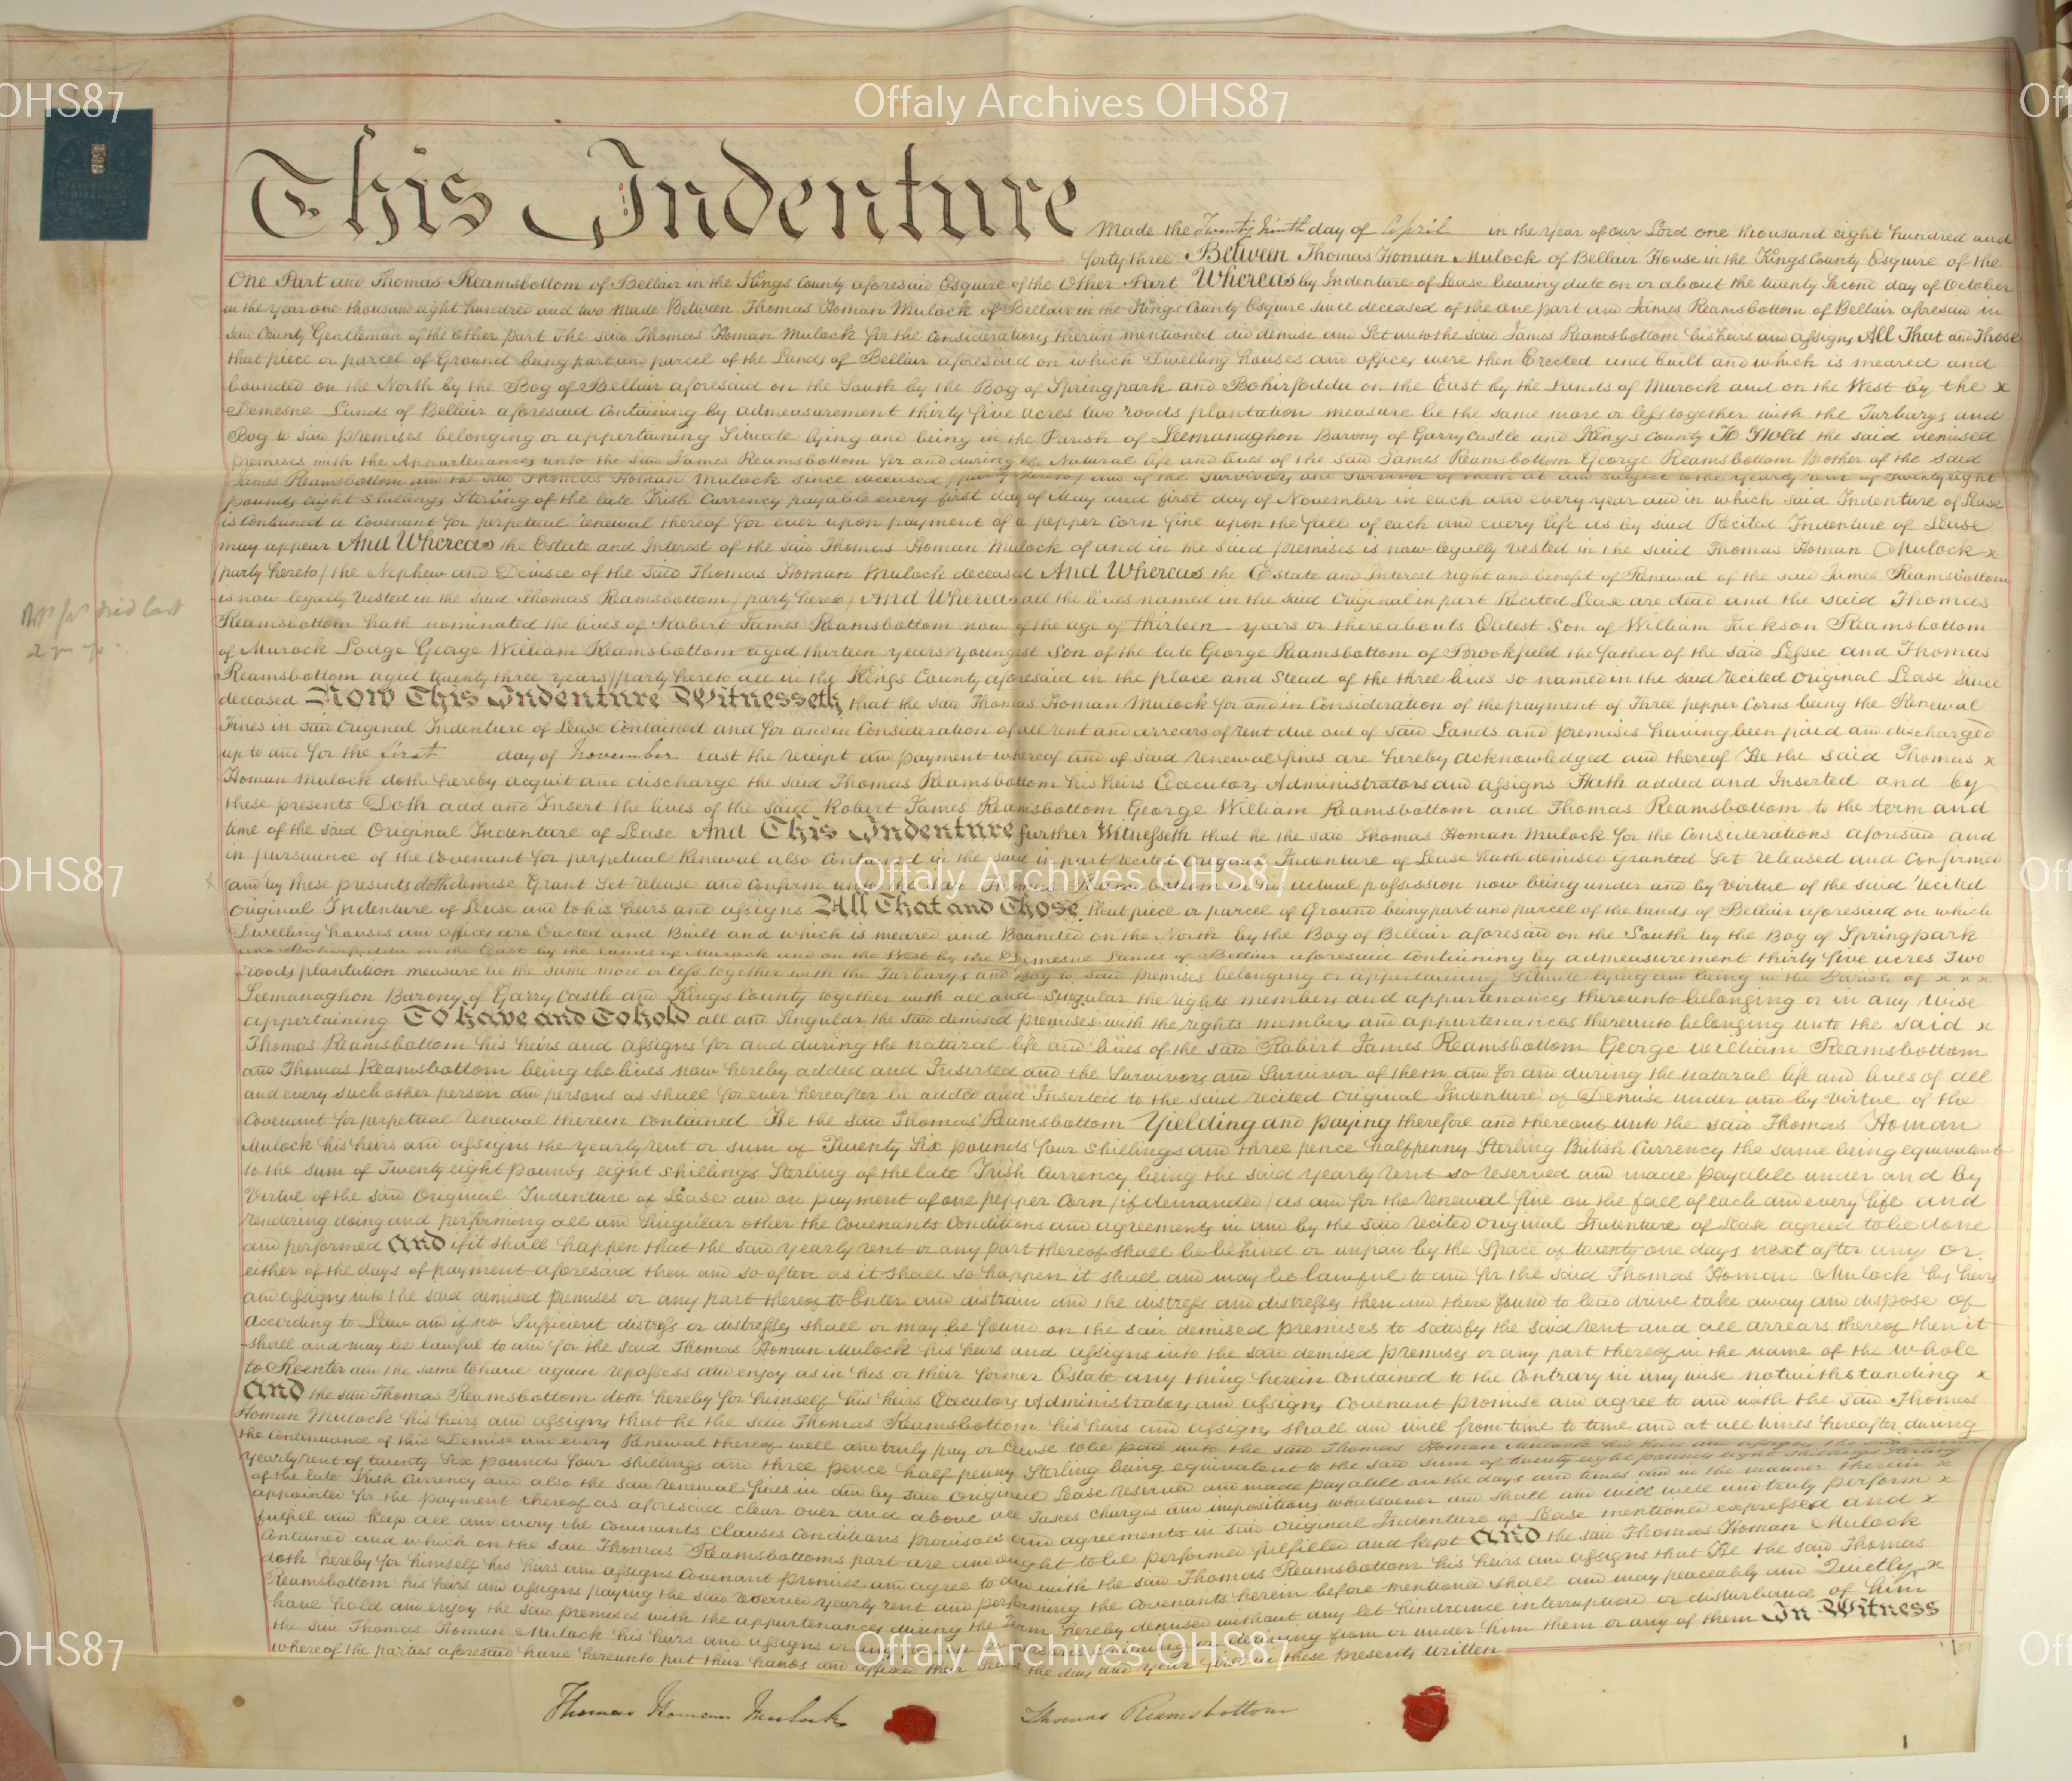 OHS87
Offaly Archives OHS87
This Indenture Made the Twenty Ninth day of April in the year of our Lord one thousand eight hundred and
forty three Between Thomas Homan Mulock of Bellair House in the Kings County Esquire of the
One Part and Thomas Reamsbottom of Bellair in the Kings County aforesaid Esquire of the Other Part Whereas by Indenture of Lease bearing date on or about the twenty Second day of October
in the year one thousand eight hundred and two Made Between Thomas Homan Mulock of Bellair in the Kings County Esquire since deceased of the one part and James Reamsbottom of Bellair aforesaid in
said County Gentleman of the Other part the said Thomas Homan Mulock for the Considerations therein mentioned did demise and Set unto the said James Reamsbottom his heirs and assigns All That and Those
that piece or parcel of Ground being part and parcel of the Lands of Bellair aforesaid on which Dwelling houses and offices were then Erected and built and which is meared and
bounded on the North by the Bog of Bellair aforesaid on the South by the Bog of Springpark and Bohirfadda on the East by the Lands of Murock and on the West by the x
Demesne Lands of Bellair aforesaid Containing by admeasurement thirty five acres two roods plantation measure be the same more or less together with the Turbarys and
Bog to said premises belonging or appertaining Situate lying and being in the Parish of Leemanaghon Barony of Garry Castle and Kings County To Hold the said demised
premises with the Appurtenances unto the said James Reamsbottom for and during the Natural life and lives of the said James Reamsbottom George Reamsbottom Brother of the said
James Reamsbottom and the said Thomas Homan Mulock since deceased (party hereto) and of the Survivors and Survivor of them at and subject to the yearly rent of Twenty eight
pounds eight Shillings Sterling of the late Irish Currency payable every first day of May and first day of November in each and every year and in which said Indenture of Lease
is contained a Covenant for perpetual renewal thereof for ever upon payment of a pepper corn fine upon the fall of each and every life as by said Recited Indenture of Lease
may appear And Whereas the Estate and Interest of the said Thomas Homan Mulock of and in the said premises is now legally vested in the said Thomas Homan Mulock x
(party hereto) the Nephew and Devisee of the said Thomas Homan Mulock deceased And Whereas the Estate and Interest right and benefit of Renewal of the said James Reamsbottom
is now legally vested in the said Thomas Reamsbottom (party hereto) And Whereas all the lives named in the said Original in part Recited Lease are dead and the said Thomas
Reamsbottom hath nominated the lives of Robert James Reamsbottom now of the age of thirteen years or thereabouts Eldest Son of William Jackson Reamsbottom
of Murock Lodge George William Reamsbottom aged thirteen years youngest Son of the late George Reamsbottom of Brookfield the father of the said Lessee and Thomas
Reamsbottom aged twenty three years (party hereto all in the Kings County aforesaid in the place and Stead of the three lives so named in the said recited Original Lease since
deceased Now This Indenture Witnesseth that the said Thomas Homan Mulock for and in Consideration of the payment of Three pepper Corns being the Renewal
Fines in said Original Indenture of Lease Contained and for and in Consideration of all rent and arrears of rent due out of said Lands and premises having been paid and discharged
up to and for the first day of November last the receipt and payment whereof and of said renewal fines are hereby acknowledged and thereof He the said Thomas x
Homan Mulock doth hereby acquit and discharge the said Thomas Reamsbottom his heirs Executors Administrators and assigns Hath added and Inserted and by
these presents Doth add and Insert the lives of the said Robert James Reamsbottom George William Reamsbottom and Thomas Reamsbottom to the term and
time of the said Original Indenture of Lease And This Indenture further Witnesseth that he the said Thomas Homan Mulock for the Considerations aforesaid and
in pursuance of the Covenant for perpetual Renewal also Contained in the said in part recited Original Indenture of Lease hath demised granted Set released and Confirmed
OHS87
Offaly Archives OHS87
(and by these presents doth demise Grant Set release and Confirm unto the said Thomas Reamsbottom in his actual possession now being under and by virtue of the said recited
Original Indenture of Lease and to his heirs and assigns All That and Those that piece or parcel of Ground being part and parcel of the lands of Bellair aforesaid on which
Dwelling houses and offices are Erected and Built and which is meared and Bounded on the North by the Bog of Bellair aforesaid on the South by the Bog of Springpark
and Bohirfadda on the East by the lands of Murock and on the West by the Demesne Lands of Bellair aforesaid Containing by admeasurement thirty five acres Two
roods plantation measure be the same more or less together with the Turbarys and Bog to said premises belonging or appertaining Situate lying and being in the Parish of x x x
Leemanaghon Barony of Garry Castle and Kings County together with all and Singular the rights members and appurtenances thereunto belonging or in any wise
appertaining To have and To hold all and Singular the said demised premises with the rights members and appurtenances thereunto belonging unto the said x
Thomas Reamsbottom his heirs and assigns for and during the natural life and lives of the said Robert James Reamsbottom George William Reamsbottom
and Thomas Reamsbottom being the lives now hereby added and Inserted and the Survivors and Survivor of them and for and during the natural life and lives of all
and every such other person and persons as shall for ever hereafter be added and Inserted to the said recited Original Indenture of Demise under and by virtue of the
Covenant for perpetual renewal therein contained He the said Thomas Reamsbottom Yielding and paying therefore and thereout unto the said Thomas Homan
Mulock his heirs and assigns the yearly rent or sum of Twenty Six pounds four shillings and three pence halfpenny Sterling British Currency the same being equivalent
to the sum of Twenty eight pounds eight shillings Sterling of the late Irish Currency being the said yearly rent so reserved and made payable under and by
virtue of the said Original Indenture of Lease and on payment of one pepper Corn (if demanded) as and for the renewal fine on the fall of each and every life and
rendering doing and performing all and Singular other the Covenants Conditions and agreements in and by the said recited Original Indenture of Lease agreed to be done
and performed And if it shall happen that the said yearly rent or any part thereof shall be behind or unpaid by the Space of twenty one days next after any or
either of the days of payment aforesaid then and so often as it shall so happen it shall and may be lawful to and for the said Thomas Homan Mulock his heirs
and assigns into the said demised premises or any part thereof to Enter and distrain and the distress and distresses then and there found to lead drive take away and dispose of
according to Law and if no Sufficient distress or distresses shall or may be found on the said demised premises to satisfy the said rent and all arrears thereof then it
shall and may be lawful to and for the said Thomas Homan Mulock his heirs and assigns into the said demised premises or any part thereof in the name of the whole
to Reenter and the same to have again repossess and enjoy as in his or their former Estate any thing herein contained to the Contrary in any wise notwithstanding x
And the said Thomas Reamsbottom doth hereby for himself his heirs Executors Administrators and assigns Covenant promise and agree to and with the said Thomas
Homan Mulock his heirs and assigns that he the said Thomas Reamsbottom his heirs and assigns shall and will from time to time and at all times hereafter during
the Continuance of this Demise and every Renewal thereof well and truly pay or Cause to be paid unto the said Thomas Homan Mulock his heirs and assigns the said
yearly rent of twenty Six pounds four shillings and three pence half penny Sterling being equivalent to the said sum of twenty eight pounds eight Shillings Sterling
of the late Irish Currency and also the said renewal fines in and by said Original Lease reserved and made payable on the days and times and in the manner therein x
appointed for the payment thereof as aforesaid clear over and above all Taxes Charges and impositions whatsoever and shall and will well and truly perform x
fulfil and keep all and every the Covenants Clauses Conditions provisoes and agreements in said Original Indenture of Lease mentioned expressed and x
Contained and which on the said Thomas Reamsbottoms part are and ought to be performed fulfilled and kept And the said Thomas Homan Mulock
doth hereby for himself his heirs and assigns Covenant promise and agree to and with the said Thomas Reamsbottom his heirs and assigns that He the said Thomas
Reamsbottom his heirs and assigns paying the said reserved yearly rent and performing the Covenants herein before mentioned shall and may peaceably and Quietly x
have hold and enjoy the said premises with the appurtenances during the Term hereby demised without any let hindrance interruption or disturbance of him
the said Thomas Homan Mulock his heirs and assigns or any claiming or deriving from or under him them or any of them In Witness
whereof the parties aforesaid have hereunto put their hands and affixed their Seals the day and year first in these presents written
OHS87
Offaly Archives OHS87
Thomas Homan Mulock
Thomas Reamsbottom
died last